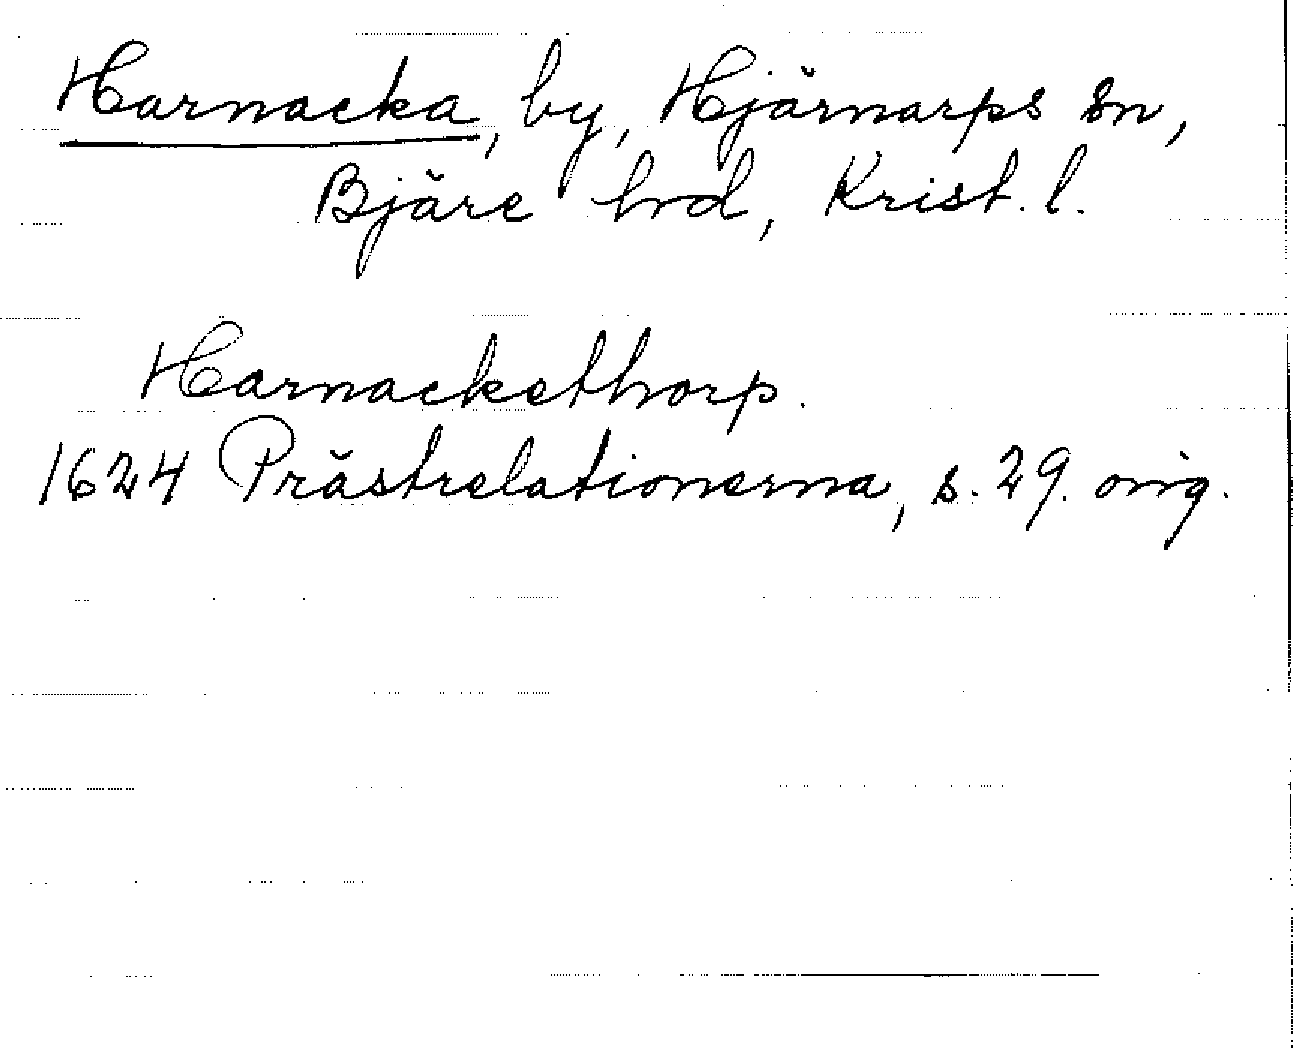 Harnacka, by, Hjärnarps sn,
Bjäre hrd, Krist. l.
Harnackethorp.
1624 Prästrelationerna, s. 29. orig.